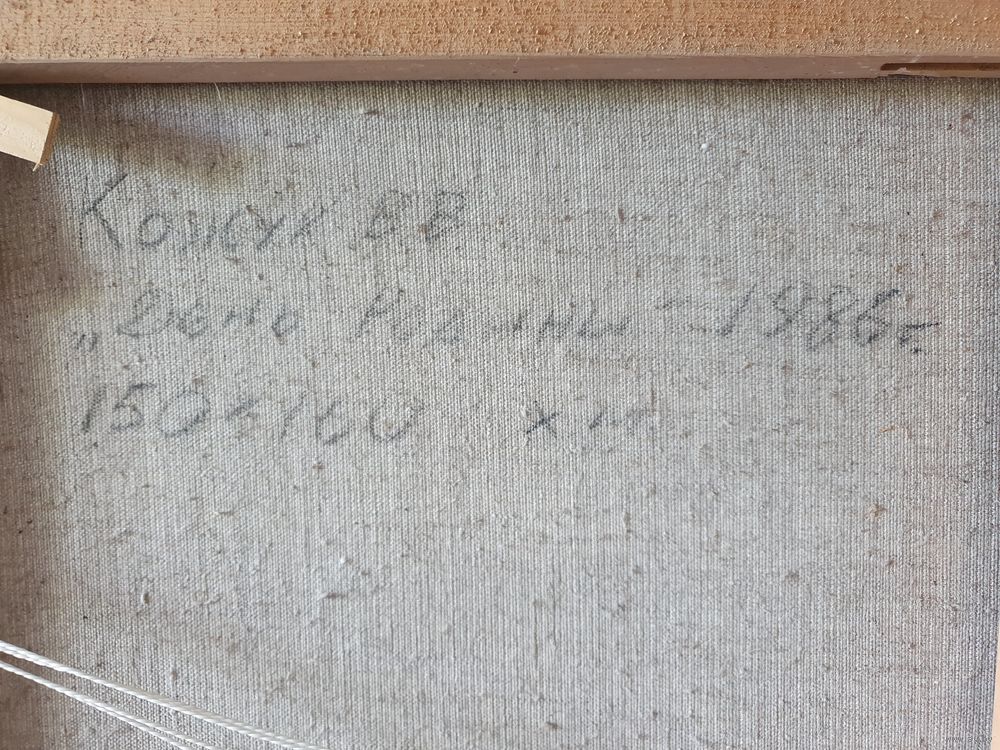 Кожух ВВ
„День Родины" 1986г.
150х160 х м